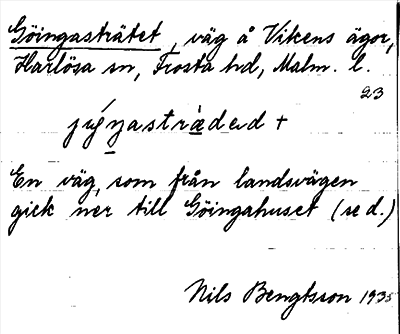 Göingasträtet, väg å Vikens ägor,
Harlösa sn, Frosta hd, Malm. l.
23
En väg, som från landsvägen
gick ner till Göingahuset (se d.)
Nils Bengtsson 1935